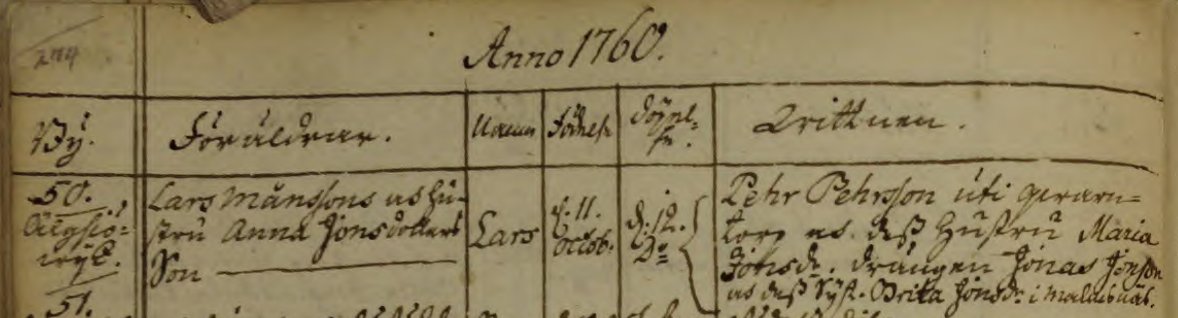 244
Anno 1760.
By. Föräldrar. Namn Födelse Döpel=
se. Wittnen.
50.
Lars Månssons och Hu=
stru Anna Jonsdotters
Son
Lars
d. 11.
Octob.
d. 12.
Do
Pehr Pehrsson uti
torp och deß Hustru Maria
Jonsdr. Drängen Jonas Jonsson
och deß Syst. Brita Jonsdr. i
51.